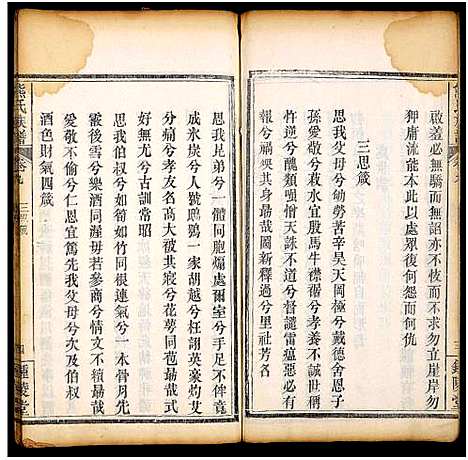 啟羞必無驕而無諂不忮而不求勿立崖岸勿
狎庸流能本此以處眾後何怨而何仇
三思箴
思我父母兮劬勞著辛昊天罔極兮戴德舍恩子
孫愛敬兮菽水宜殷馬牛襟裾兮孝養不誠世間
忤逆兮憎惱天誅不道兮督譴雷瘟惡必有
報兮幸哉圖新釋過兮里社芳名
思我兄弟兮一體同胞煽處爾室兮手足不侔竟
成氷炭兮人號鴟鴞一家胡越兮枉詡英豪灼艾
分痛兮孝友名高大被其寢兮花萼同苞勗哉式
好無尤兮古訓常昭
思我伯叔兮如筍如竹同根連氣兮一本骨肉先
霰後雪兮樂酒同渥毋若參商兮情文不一毋曰
愛敬不偷兮仁恩宜篤先我父母兮次及伯叔
酒色財氣四箴
熊氏族譜
卷九
三思箴
四
鍾陵堂
三
鍾陵堂